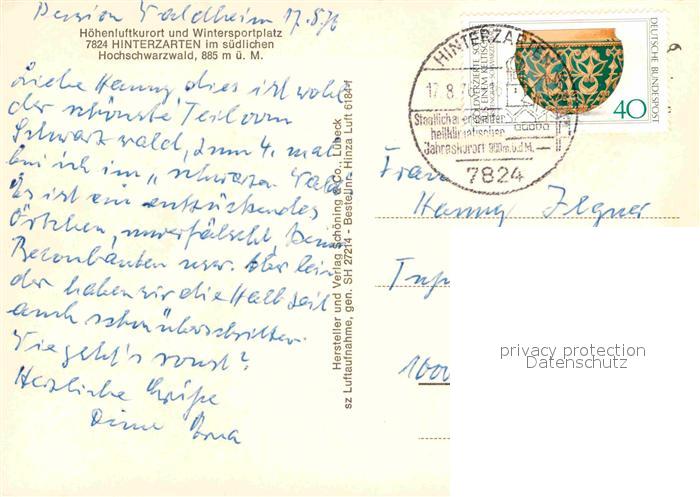 Pension Waldheim 17.8.76
Höhenluftkurort und Wintersportplatz
7824 HINTERZARTEN im südlichen
Hochschwarzwald, 885 m ü. M.
Liebe Hanny, dies ist wohl
der schönste Teil vom
Schwarzwald, zum 4. mal
bin ich im „schwarzen Wald
Es ist ein entzückendes
Örtchen, unverfälscht, keine
Betonbauten usw. Aber lei
der haben wir die Halbzeit
auch schon überschritten.
Wie geht's sonst?
Herzliche Grüße
Deine
Hersteller und Verlag Schöning & Co., Lübeck
sz Luftaufnahme, gen. SH 27/214 - Bestell-Nr. Hinza Luft 61844
HINTERZARTEN
17.8.
Staatlich anerkannter
heilklimatischer
Jahreskurort 900m.ü.d.M.
7824
DEUTSCHE BUNDESPOST
40
Frau
Hanny
1000
privacy protection
Datenschutz